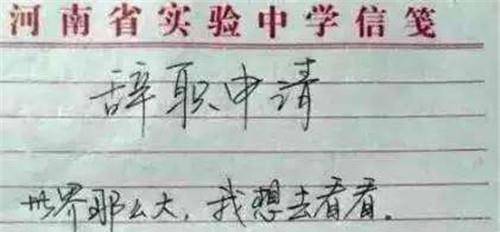 河南省实验中学信笺
辞职申请
世界那么大,我想去看看.